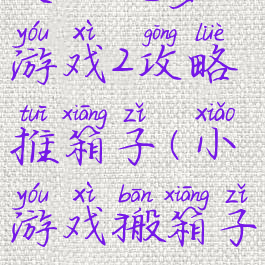 yóu xì gōng lüè
游戏2攻略
tuī xiāng zǐ xiǎo
推箱子(小
yóu xì bān xiāng zǐ
游戏搬箱子